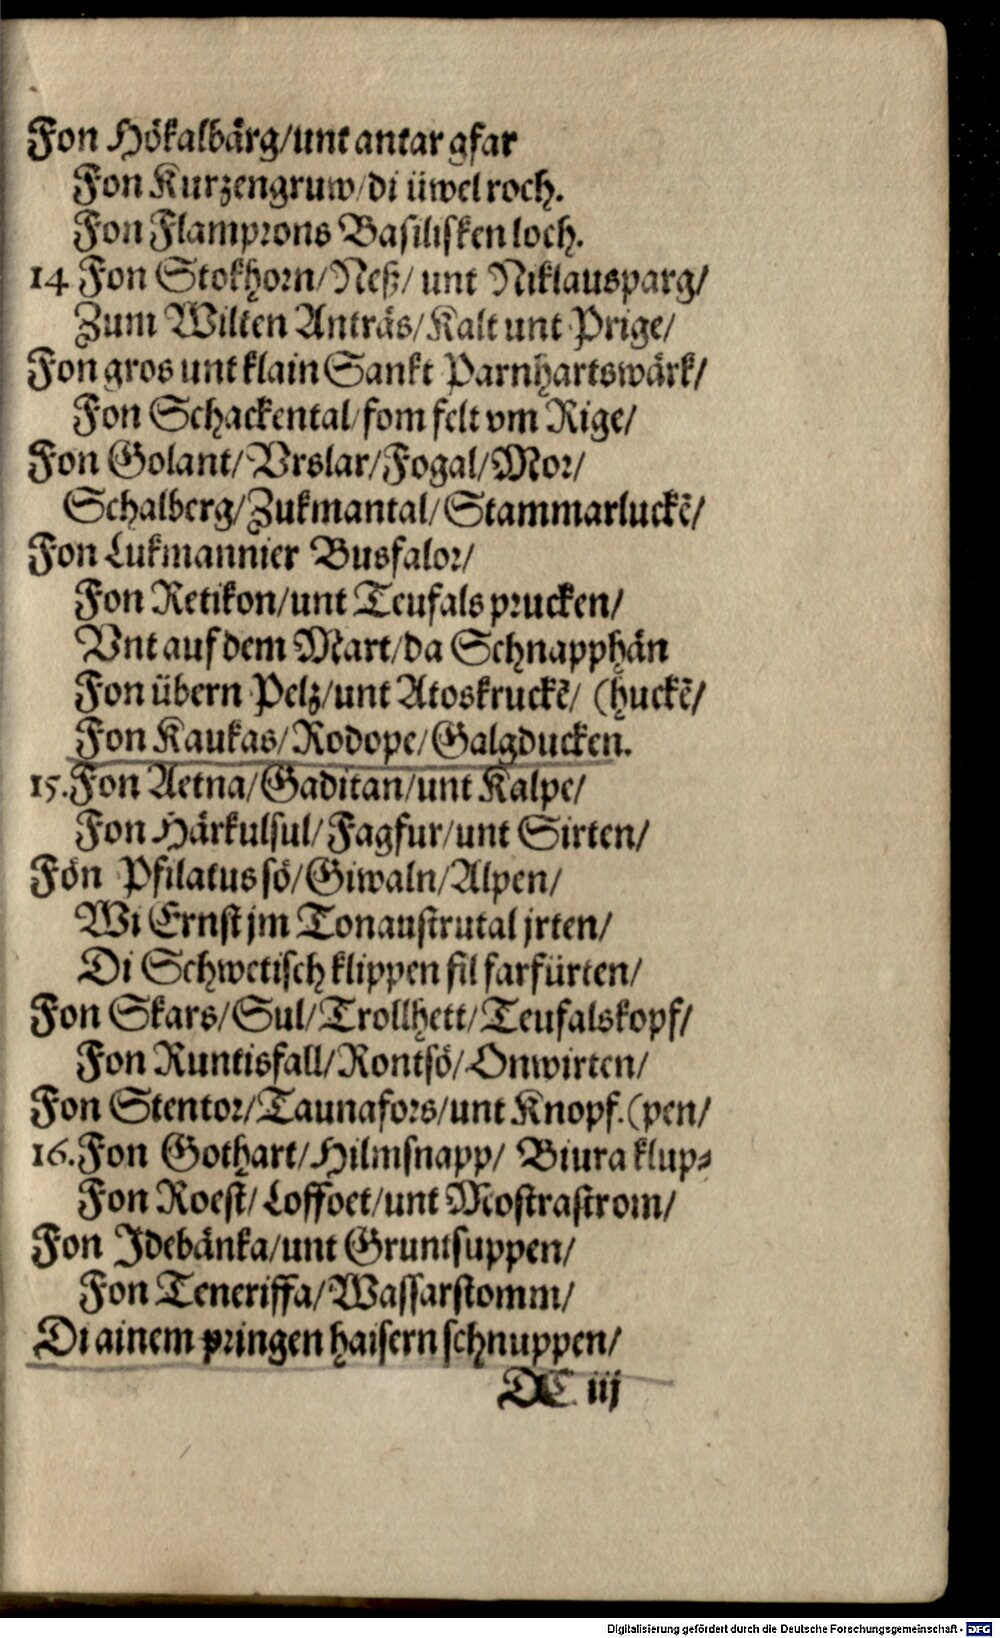 Fon Hökalbärg/unt antar gfar
Fon Kurzengruw/di üwel roch.
Fon Flamprons Basilisken loch.
14 Fon Stokhorn/Neß/ unt Niklausparg/
Zum Wilten Anträs/Kalt unt Prige/
Fon gros unt klain Sankt Parnhartswärk/
Fon Schackental/fom felt vm Rige/
Fon Golant/Vrslar/Fogal/Mor/
Schalberg/Zukmantal/Stammarluckē/
Fon Lukmannier Busfalor/
Fon Retikon/unt Teufals prucken/
Vnt auf dem Mart/da Schnapphän
Fon übern Pelz/unt Atoskruckē/ (huckē/
Fon Kaukas/Rodope/Galgducken.
15. Fon Aetna/Gaditan/unt Kalpe/
Fon Härkulsul/Fagfur/unt Sirten/
Fön Pfilatus sö/Giwaln/Alpen/
Wi Ernst jm Tonaustrutal jrten/
Di Schwetisch klippen fil farfürten/
Fon Skars/Sul/Trollhett/Teufalskopf/
Fon Runtisfall/Rontsö/Onwirten/
Fon Stentor/Taunafors/unt Knopf. (pen/
16. Fon Gothart/Hilmsnapp/ Biura klup⸗
Fon Roest/Loffoet/unt Mostrastrom/
Fon Idebänka/unt Gruntsuppen/
Fon Teneriffa/Wassarstomm/
Di ainem pringen haisern schnuppen/
iij
Digitalisierung gefördert durch die Deutsche Forschungsgemeinschaft - DFG